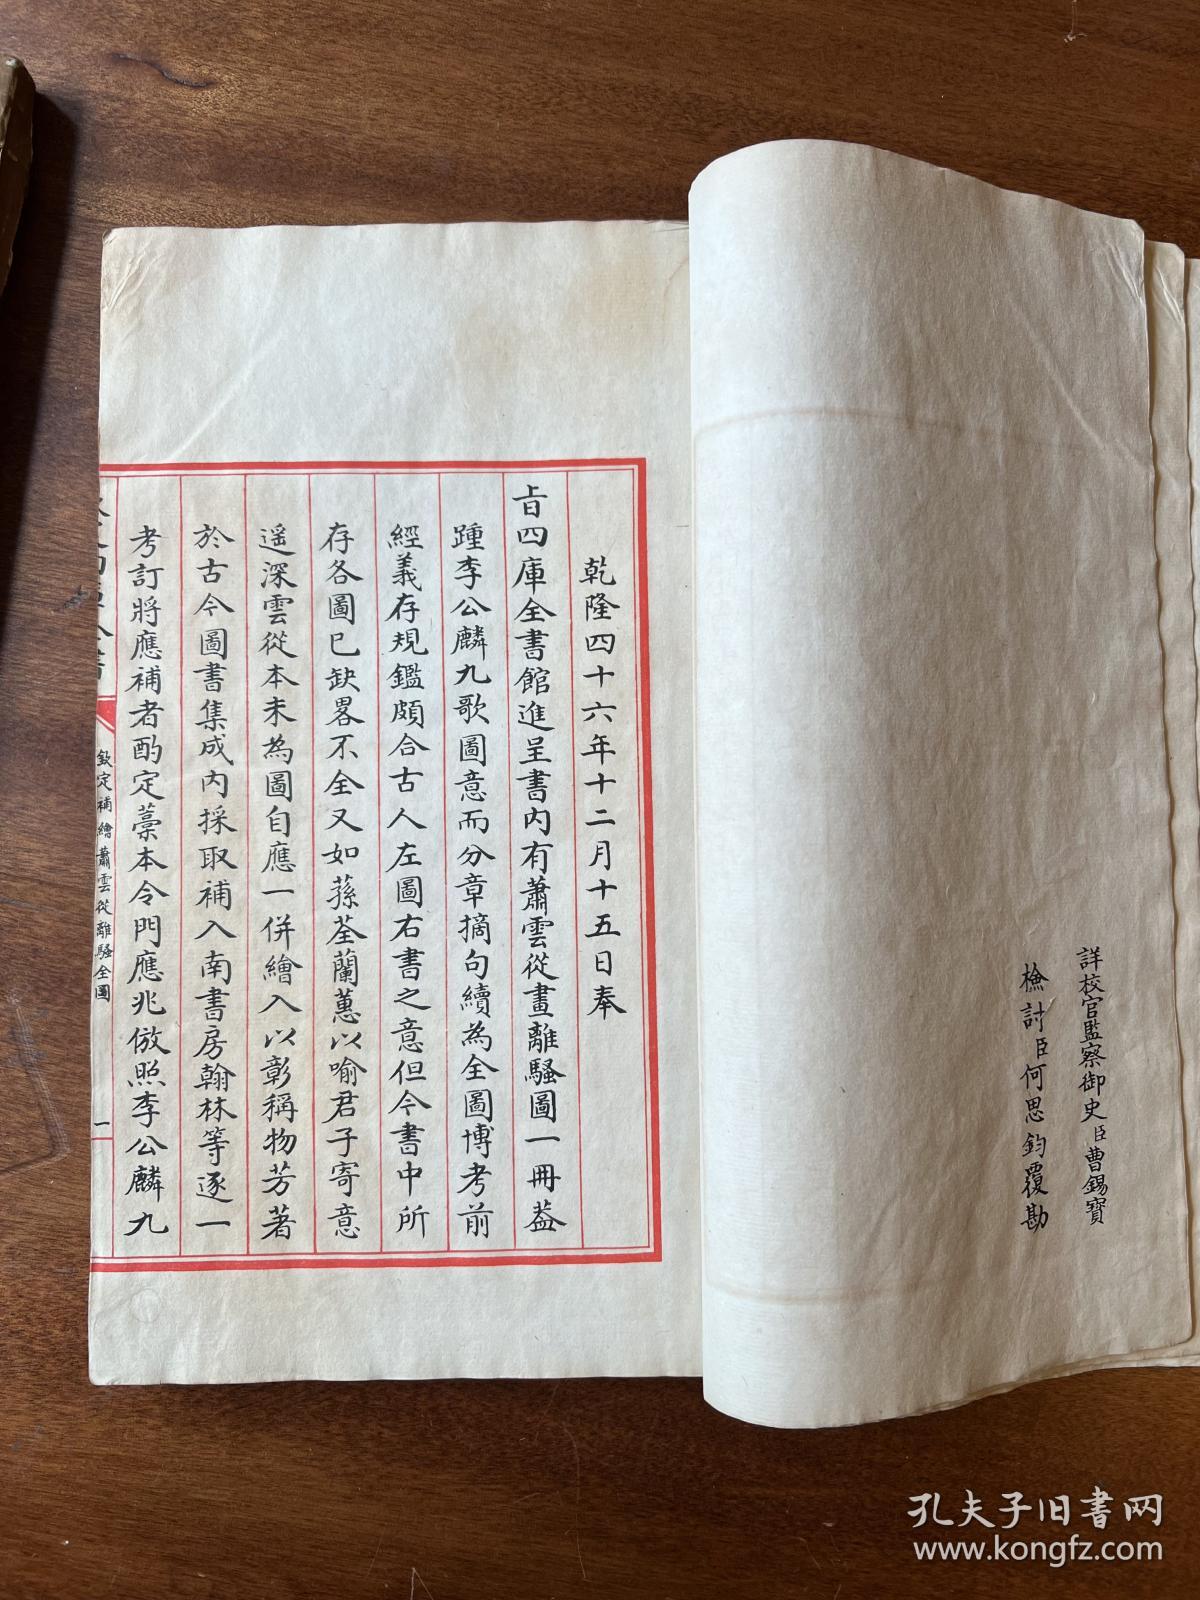 詳校官監察御史臣曹錫寶
檢討臣何思鈞覆勘
乾隆四十六年十二月十五日奉
旨四庫全書館進呈書内有蕭雲從畫離騷圖一冊葢
踵李公麟九歌圖意而分章摘句續為全圖博考前
經義存規鑑頗合古人左圖右書之意但今書中所
存各圖已缺畧不全又如蓀荃蘭蕙以喻君子寄意
遥深雲從本未為圖自應一併繪入以彰稱物芳著
於古今圖書集成内採取補入南書房翰林等逐一
考訂將應補者酌定藁本令門應兆倣照李公麟九
欽定補繪蕭雲從離騷全圖
一
孔夫子旧书网
www.kongfz.com